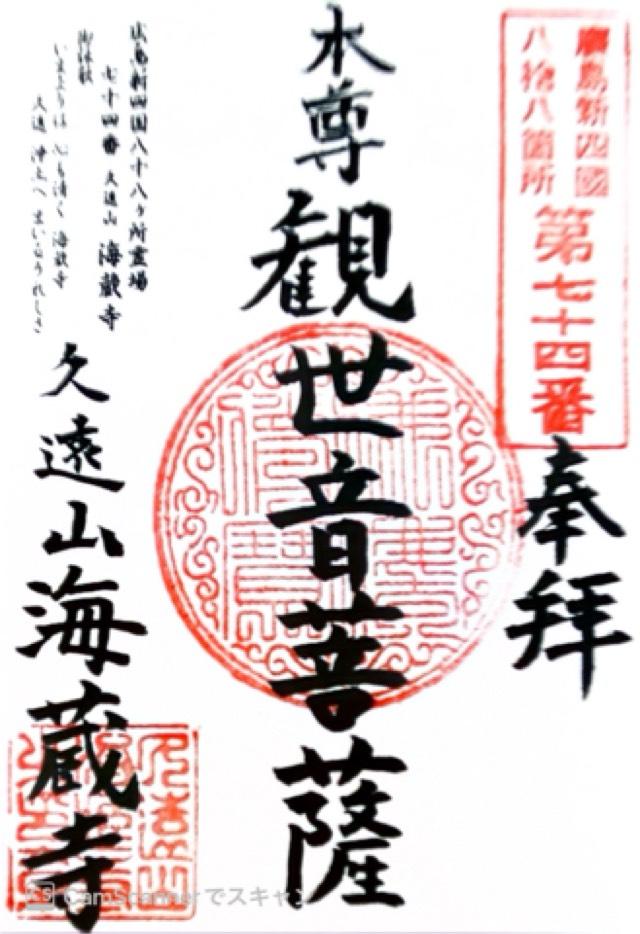 廣島新四國
八拾八箇所
第七十四番
奉拝
本尊
観世音菩薩
広島新四国八十八ヶ所霊場
七十四番 久遠山 海蔵寺
御詠歌
いまよりは 心も清く 海蔵寺
久遠 浄土へ まいるうれしさ
久遠山
海蔵寺
CamScannerでスキャン